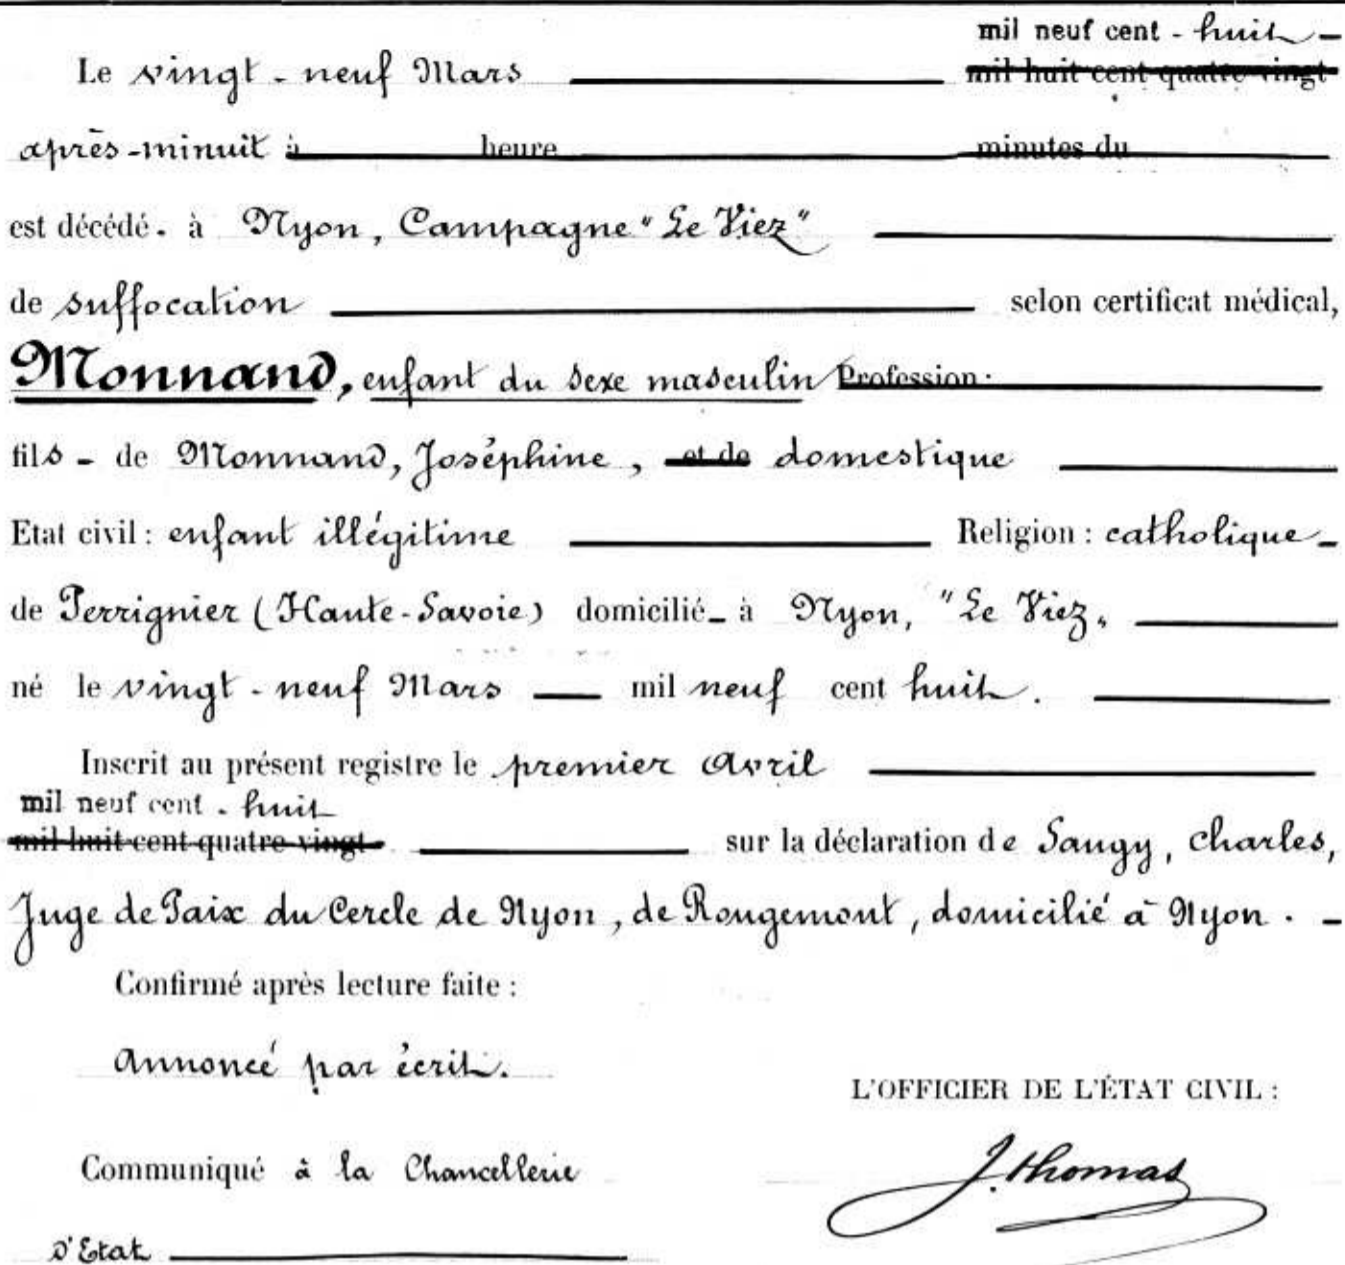 mil neuf cent - huit -
Le vingt - neuf Mars mil huit cent quatre vingt
après-minuit à heure minutes du
est décédé. à Nyon, Campagne "Le Viez"
de suffocation selon certificat médical,
Monnand, enfant du sexe masculin Profession.
fils - de Monnand, Joséphine, et de domestique
Etat civil : enfant illégitime Religion : catholique -
de Perrignier (Haute-Savoie) domicilié - à Nyon, "Le Viez"
né le vingt - neuf Mars mil neuf cent huit.
Inscrit au présent registre le premier Avril
mil neuf cent - huit
mil huit cent quatre vingt sur la déclaration de Saugy, Charles,
Juge de Paix du Cercle de Nyon, de Rougemont, domicilié à Nyon. -
Confirmé après lecture faite :
Annoncé par écrit.
L'OFFICIER DE L'ÉTAT CIVIL :
Communiqué à la Chancellerie
J. Thomas
D'Etat